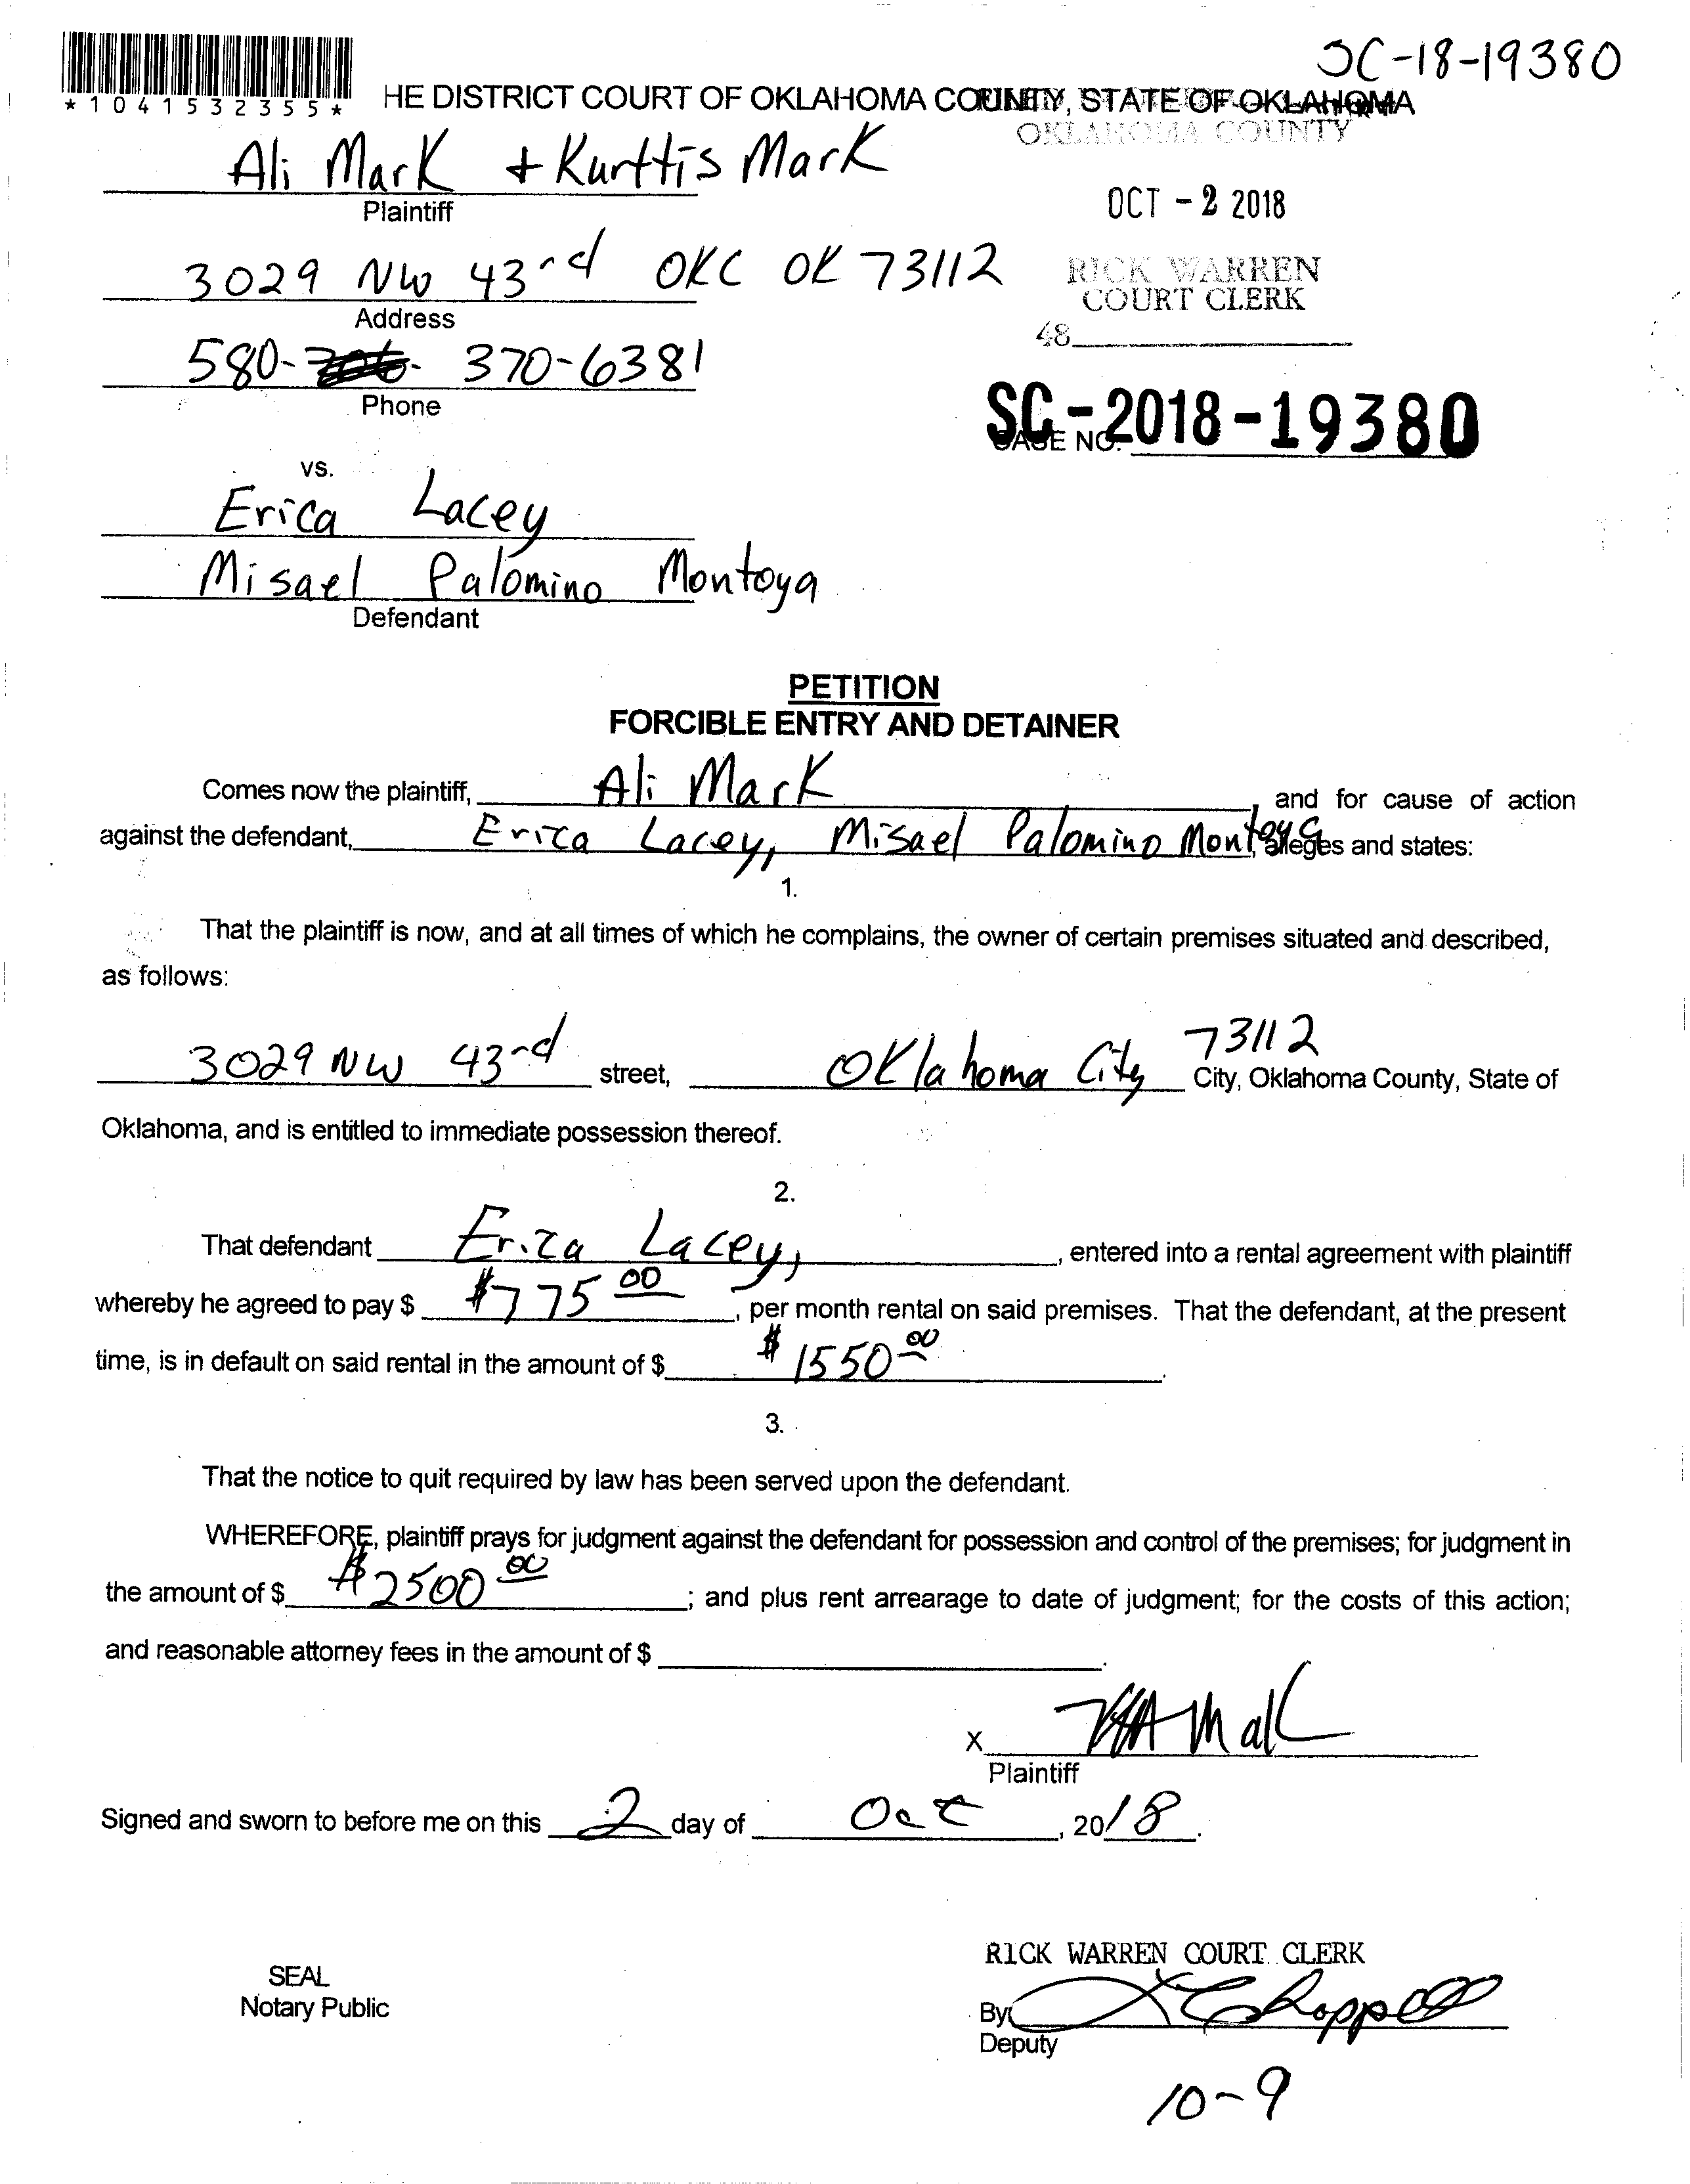 SC-18-19380
*1041532355*
HE DISTRICT COURT OF OKLAHOMA COUNTY, STATE OF OKLAHOMA
OKLAHOMA COUNTY
Ali Mark + Kurttis Mark
Plaintiff
OCT - 2 2018
3029 NW 43rd OKC OK 73112
Address
RICK WARREN
COURT CLERK
48
580- 370-6381
Phone
SC-2018-19380
CASE NO.
vs.
Erica Lacey
Misael Palomino Montoya
Defendant
PETITION
FORCIBLE ENTRY AND DETAINER
Comes now the plaintiff, Ali Mark, and for cause of action
against the defendant, Erica Lacey, Misael Palomino Montoya, alleges and states:
1.
That the plaintiff is now, and at all times of which he complains, the owner of certain premises situated and described,
as follows:
3029 NW 43rd street, Oklahoma City 73112 City, Oklahoma County, State of
Oklahoma, and is entitled to immediate possession thereof.
2.
That defendant Erica Lacey, , entered into a rental agreement with plaintiff
whereby he agreed to pay $ $775 00, per month rental on said premises. That the defendant, at the present
time, is in default on said rental in the amount of $ $1550 00.
3.
That the notice to quit required by law has been served upon the defendant.
WHEREFORE, plaintiff prays for judgment against the defendant for possession and control of the premises; for judgment in
the amount of $ $2500 00; and plus rent arrearage to date of judgment; for the costs of this action;
and reasonable attorney fees in the amount of $ .
X
Plaintiff
Signed and sworn to before me on this 2 day of Oct, 2018.
RICK WARREN COURT CLERK
SEAL
Notary Public
By
Deputy
10-9